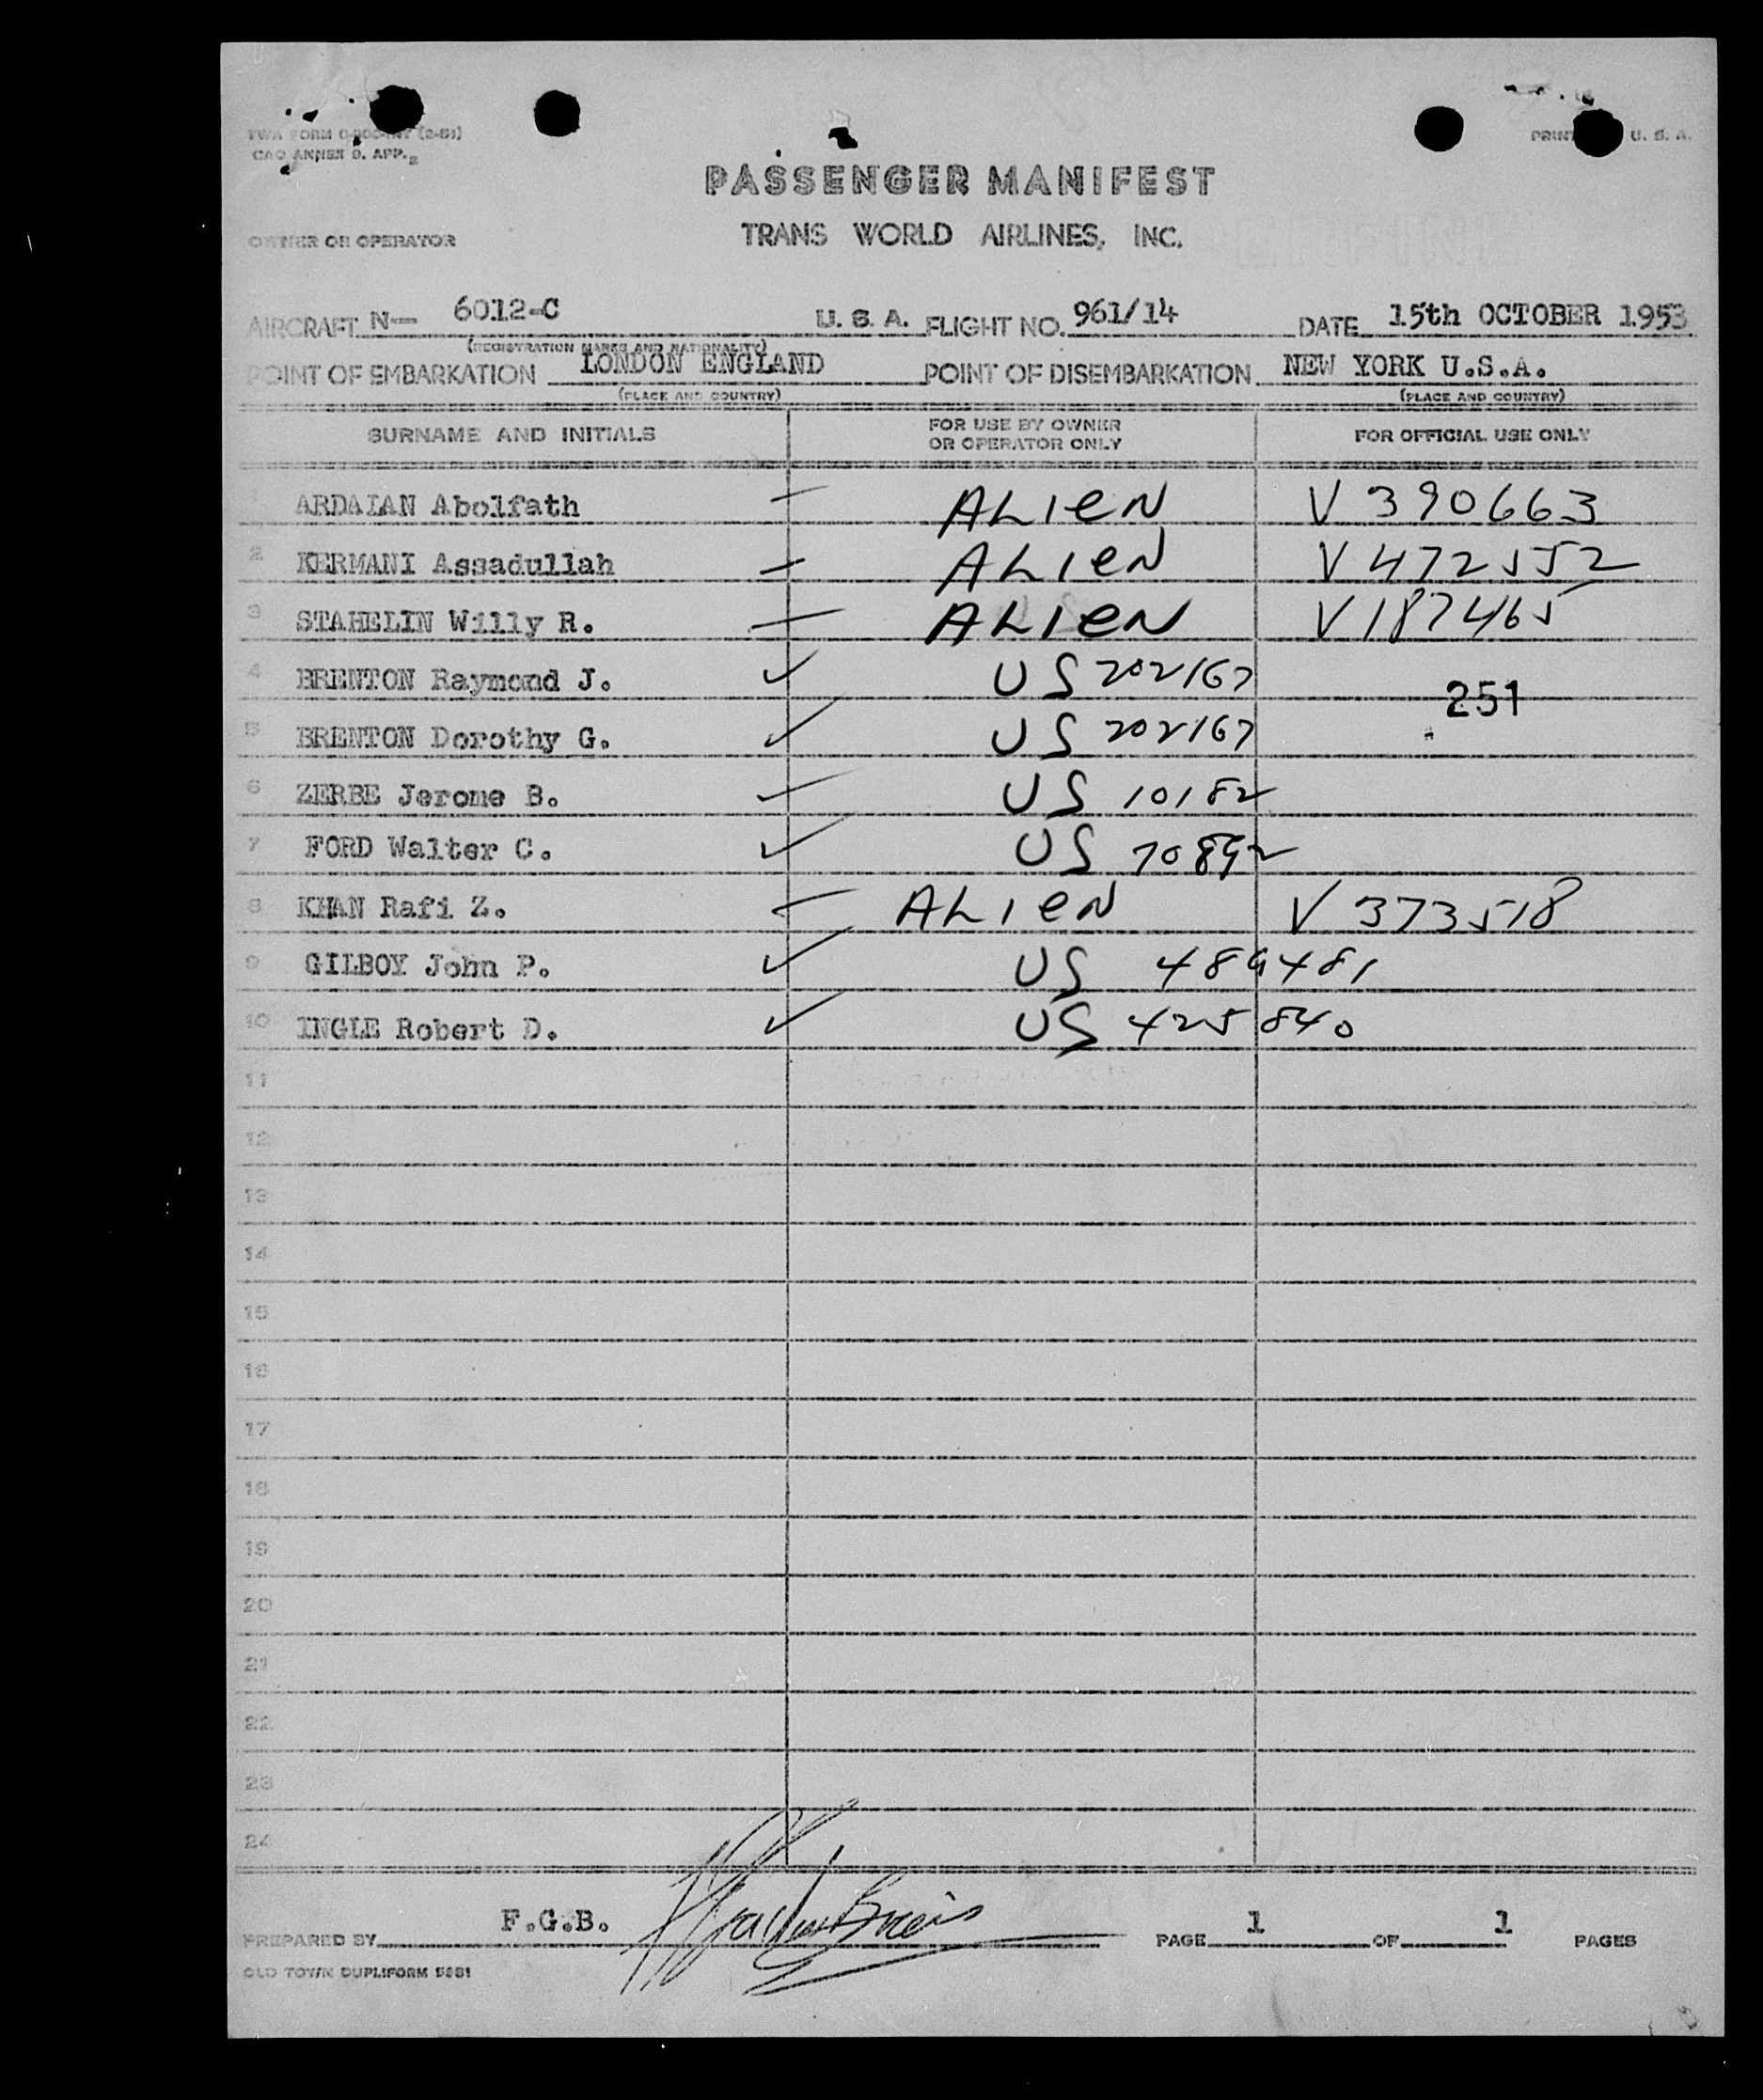 TWA FORM (2-51)
CAO ANNEX 9. APP. 2
U. S. A.
PASSENGER MANIFEST
OWNER OR OPERATOR TRANS WORLD AIRLINES, INC.
AIRCRAFT N— 6012-C U. S. A. FLIGHT NO. 961/14 DATE 15th OCTOBER 1953
(REGISTRATION MARKS AND NATIONALITY)
POINT OF EMBARKATION LONDON ENGLAND POINT OF DISEMBARKATION NEW YORK U.S.A.
(PLACE AND COUNTRY) (PLACE AND COUNTRY)
SURNAME AND INITIALS FOR USE BY OWNER OR OPERATOR ONLY FOR OFFICIAL USE ONLY
ARDALAN Abolfath — ALIEN V 390663
2 KERMANI Assadullah — ALIEN V 472552
3 STAHELIN Willy R. — ALIEN V 187465
4 BRENTON Raymond J. ✓ US 202167
251
5 BRENTON Dorothy G. ✓ US 202167
6 ZERBE Jerome B. ✓ US 10182
7 FORD Walter C. ✓ US 70892
8 KHAN Rafi Z. — ALIEN V 373518
9 GILBOY John P. ✓ US 489481
10 INGLE Robert D. ✓ US 425840
11
12
13
14
15
16
17
18
19
20
21
22
23
24
PREPARED BY F.G.B. PAGE 1 OF 1 PAGES
OLD TOWN DUPLIFORM 5881